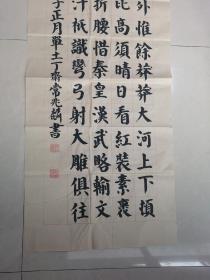 外惟餘莽莽大河上下頓
比高須晴日看紅裝素裹
折腰惜秦皇漢武略輸文
汗祇識彎弓射大雕俱往
子正月單土丁齋常兆麟書